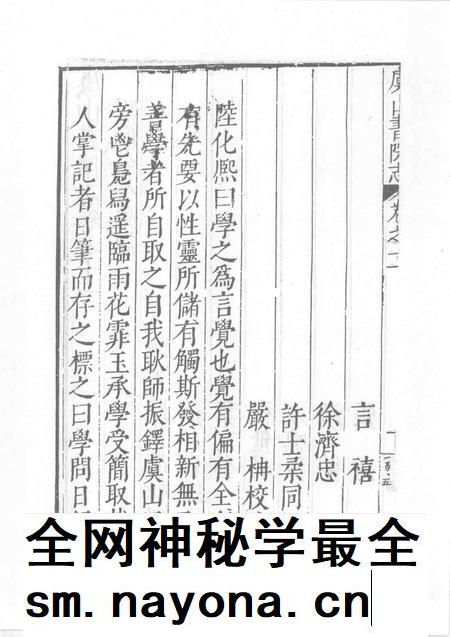 虞山書院志 卷之
言 禧
徐濟忠
許士柔同
嚴 柟校
陸化熙曰學之爲言覺也覺有偏有全
有先要以性靈所儲有觸斯發相新無
善學者所自取之自我耿師振鐸虞山
旁鬯鳧舄遥臨雨花霏玉承學受簡取
人掌記者日筆而存之標之曰學問日
全网神秘学最全
sm.nayona.cn